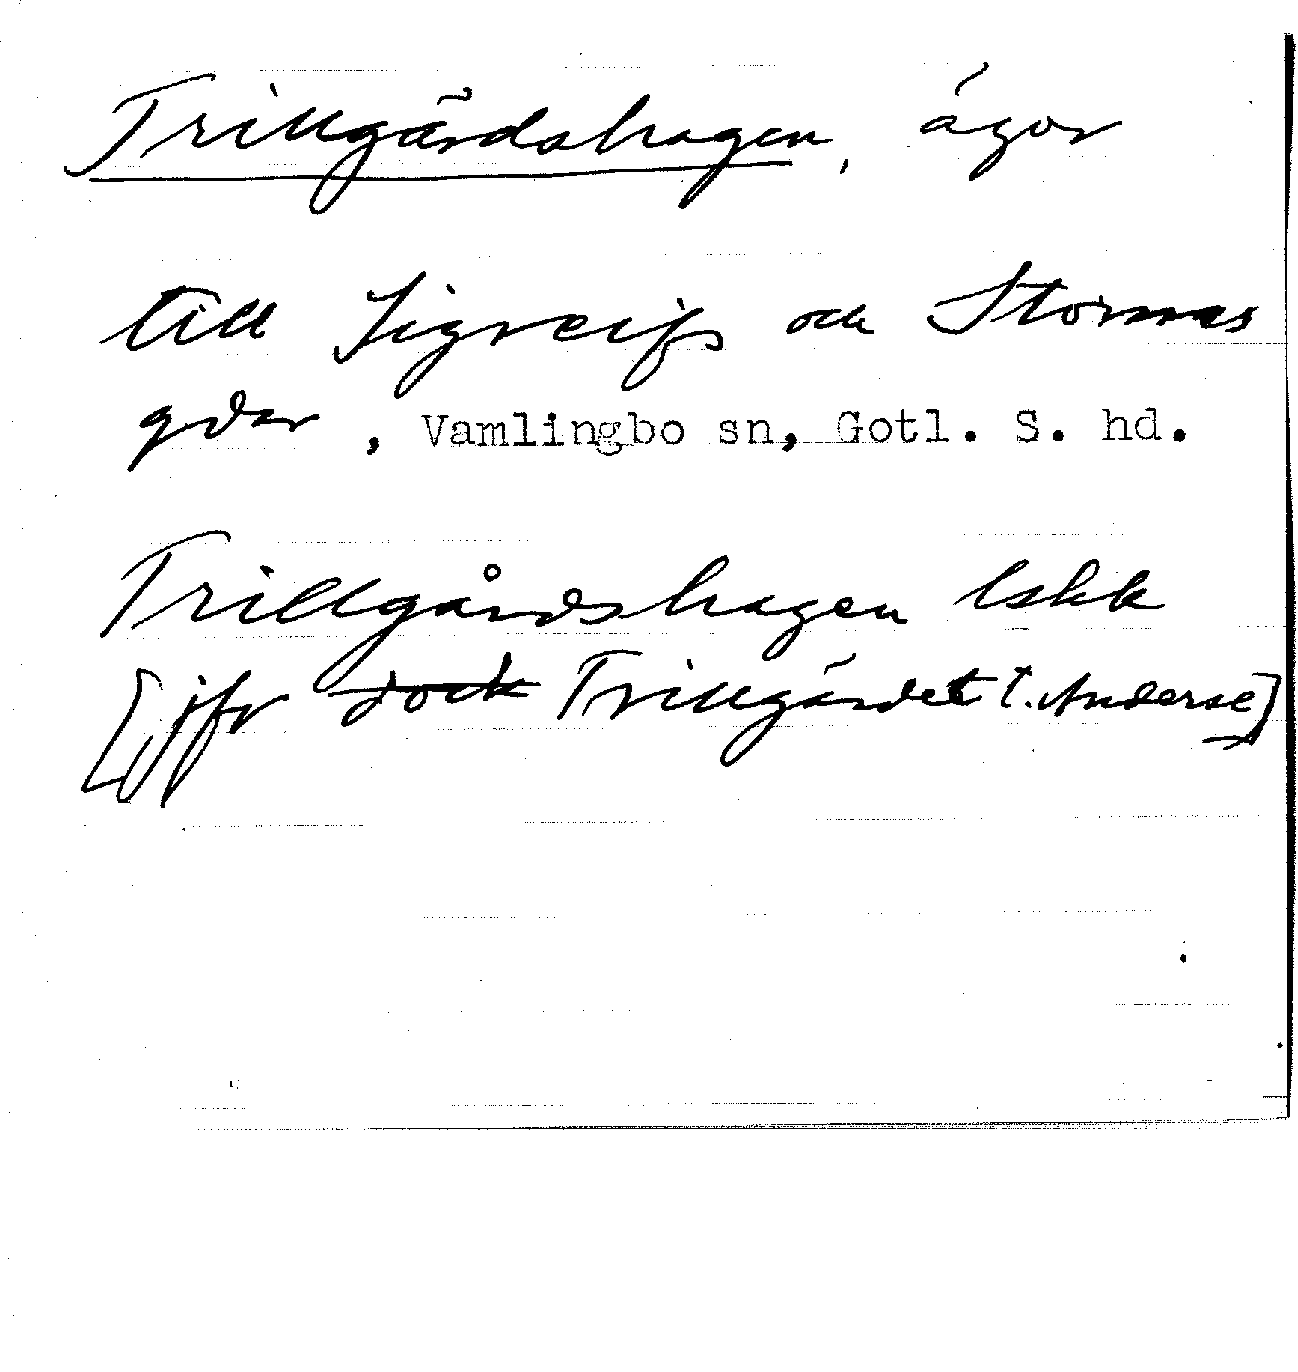 Trillgärdshagen, ägor
till Sigreifs och Stormes
gdar, Vamlingbo sn, Gotl. S. hd.
Trillgårdshagen lskk
[jfr dock Trillgärdet t. Anderse]